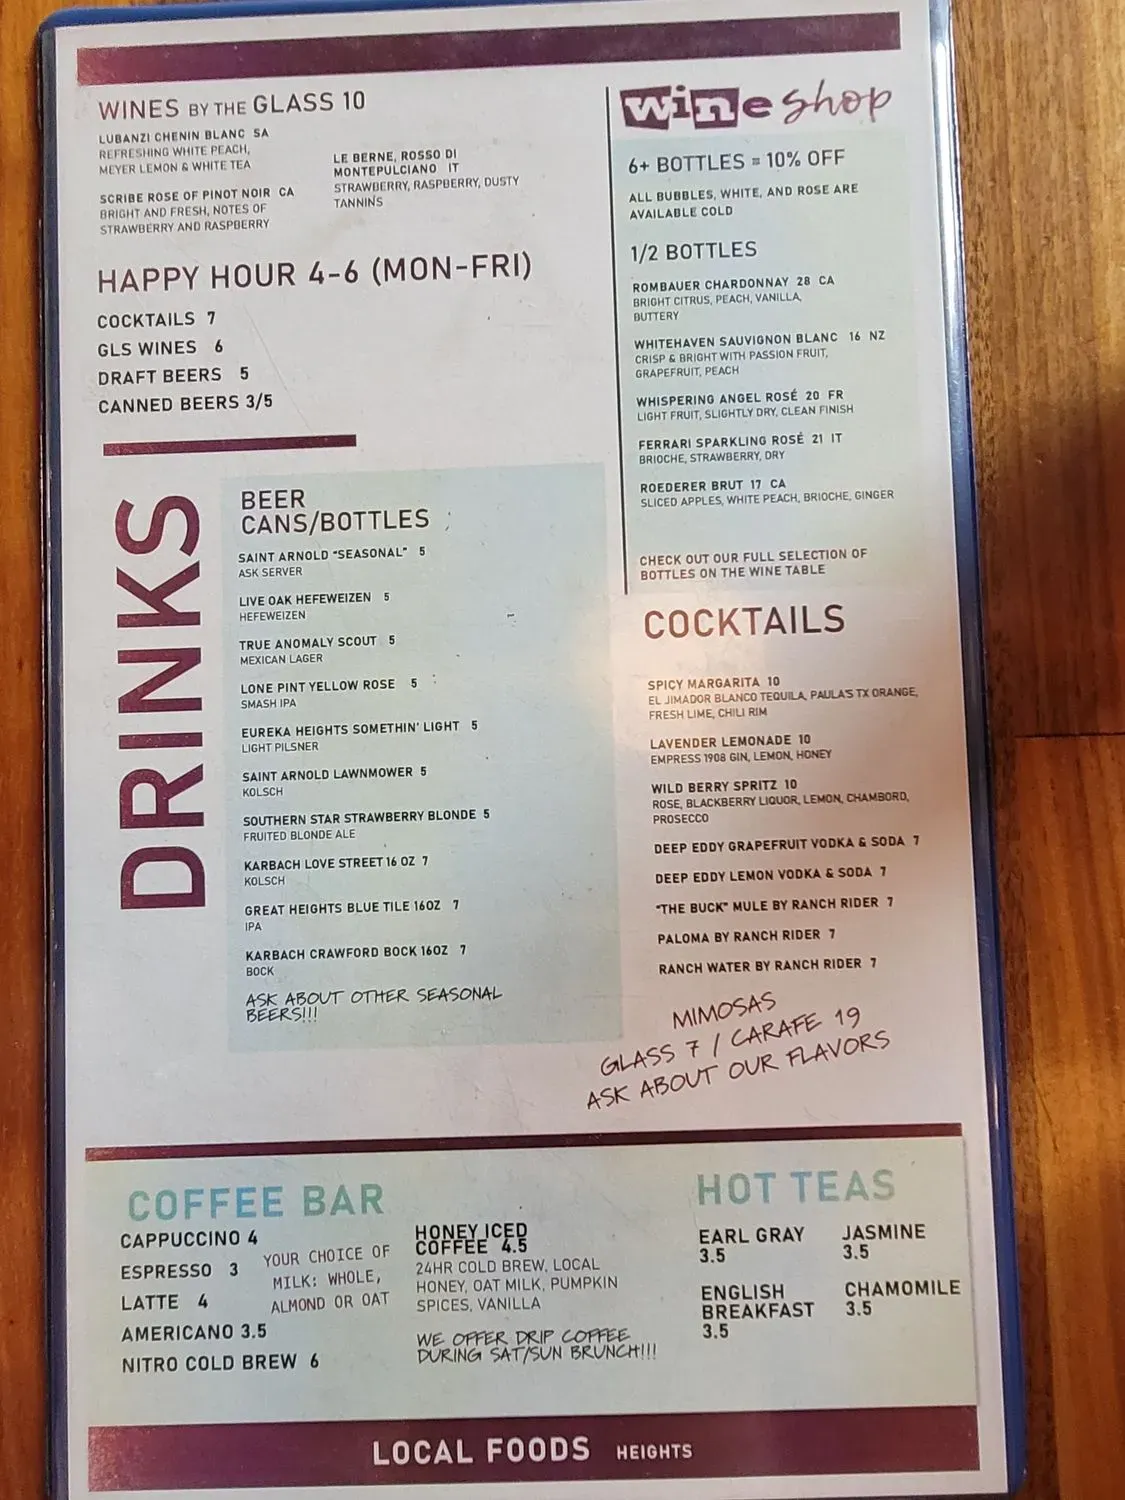 WINES BY THE GLASS 10
LUBANZI CHENIN BLANC SA
REFRESHING WHITE PEACH,
MEYER LEMON & WHITE TEA
SCRIBE ROSE OF PINOT NOIR CA
BRIGHT AND FRESH, NOTES OF
STRAWBERRY AND RASPBERRY
LE BERNE, ROSSO DI
MONTEPULCIANO IT
STRAWBERRY, RASPBERRY, DUSTY
TANNINS
HAPPY HOUR 4-6 (MON-FRI)
COCKTAILS 7
GLS WINES 6
DRAFT BEERS 5
CANNED BEERS 3/5
DRINKS
BEER
CANS/BOTTLES
SAINT ARNOLD "SEASONAL" 5
ASK SERVER
LIVE OAK HEFEWEIZEN 5
HEFEWEIZEN
TRUE ANOMALY SCOUT 5
MEXICAN LAGER
LONE PINT YELLOW ROSE 5
SMASH IPA
EUREKA HEIGHTS SOMETHIN' LIGHT 5
LIGHT PILSNER
SAINT ARNOLD LAWNMOWER 5
KOLSCH
SOUTHERN STAR STRAWBERRY BLONDE 5
FRUITED BLONDE ALE
KARBACH LOVE STREET 16 OZ 7
KOLSCH
GREAT HEIGHTS BLUE TILE 16OZ 7
IPA
KARBACH CRAWFORD BOCK 16OZ 7
BOCK
ASK ABOUT OTHER SEASONAL
BEERS!!!
wine shop
6+ BOTTLES = 10% OFF
ALL BUBBLES, WHITE, AND ROSE ARE
AVAILABLE COLD
1/2 BOTTLES
ROMBAUER CHARDONNAY 28 CA
BRIGHT CITRUS, PEACH, VANILLA,
BUTTERY
WHITEHAVEN SAUVIGNON BLANC 16 NZ
CRISP & BRIGHT WITH PASSION FRUIT,
GRAPEFRUIT, PEACH
WHISPERING ANGEL ROSÉ 20 FR
LIGHT FRUIT, SLIGHTLY DRY, CLEAN FINISH
FERRARI SPARKLING ROSÉ 21 IT
BRIOCHE, STRAWBERRY, DRY
ROEDERER BRUT 17 CA
SLICED APPLES, WHITE PEACH, BRIOCHE, GINGER
CHECK OUT OUR FULL SELECTION OF
BOTTLES ON THE WINE TABLE
COCKTAILS
SPICY MARGARITA 10
EL JIMADOR BLANCO TEQUILA, PAULA'S TX ORANGE,
FRESH LIME, CHILI RIM
LAVENDER LEMONADE 10
EMPRESS 1908 GIN, LEMON, HONEY
WILD BERRY SPRITZ 10
ROSE, BLACKBERRY LIQUOR, LEMON, CHAMBORD,
PROSECCO
DEEP EDDY GRAPEFRUIT VODKA & SODA 7
DEEP EDDY LEMON VODKA & SODA 7
"THE BUCK" MULE BY RANCH RIDER 7
PALOMA BY RANCH RIDER 7
RANCH WATER BY RANCH RIDER 7
MIMOSAS
GLASS 7 / CARAFE 19
ASK ABOUT OUR FLAVORS
COFFEE BAR
CAPPUCCINO 4
ESPRESSO 3
LATTE 4
AMERICANO 3.5
NITRO COLD BREW 6
YOUR CHOICE OF
MILK: WHOLE,
ALMOND OR OAT
HONEY ICED
COFFEE 4.5
24HR COLD BREW, LOCAL
HONEY, OAT MILK, PUMPKIN
SPICES, VANILLA
WE OFFER DRIP COFFEE
DURING SAT/SUN BRUNCH!!!
HOT TEAS
EARL GRAY
3.5
ENGLISH
BREAKFAST
3.5
JASMINE
3.5
CHAMOMILE
3.5
LOCAL FOODS HEIGHTS